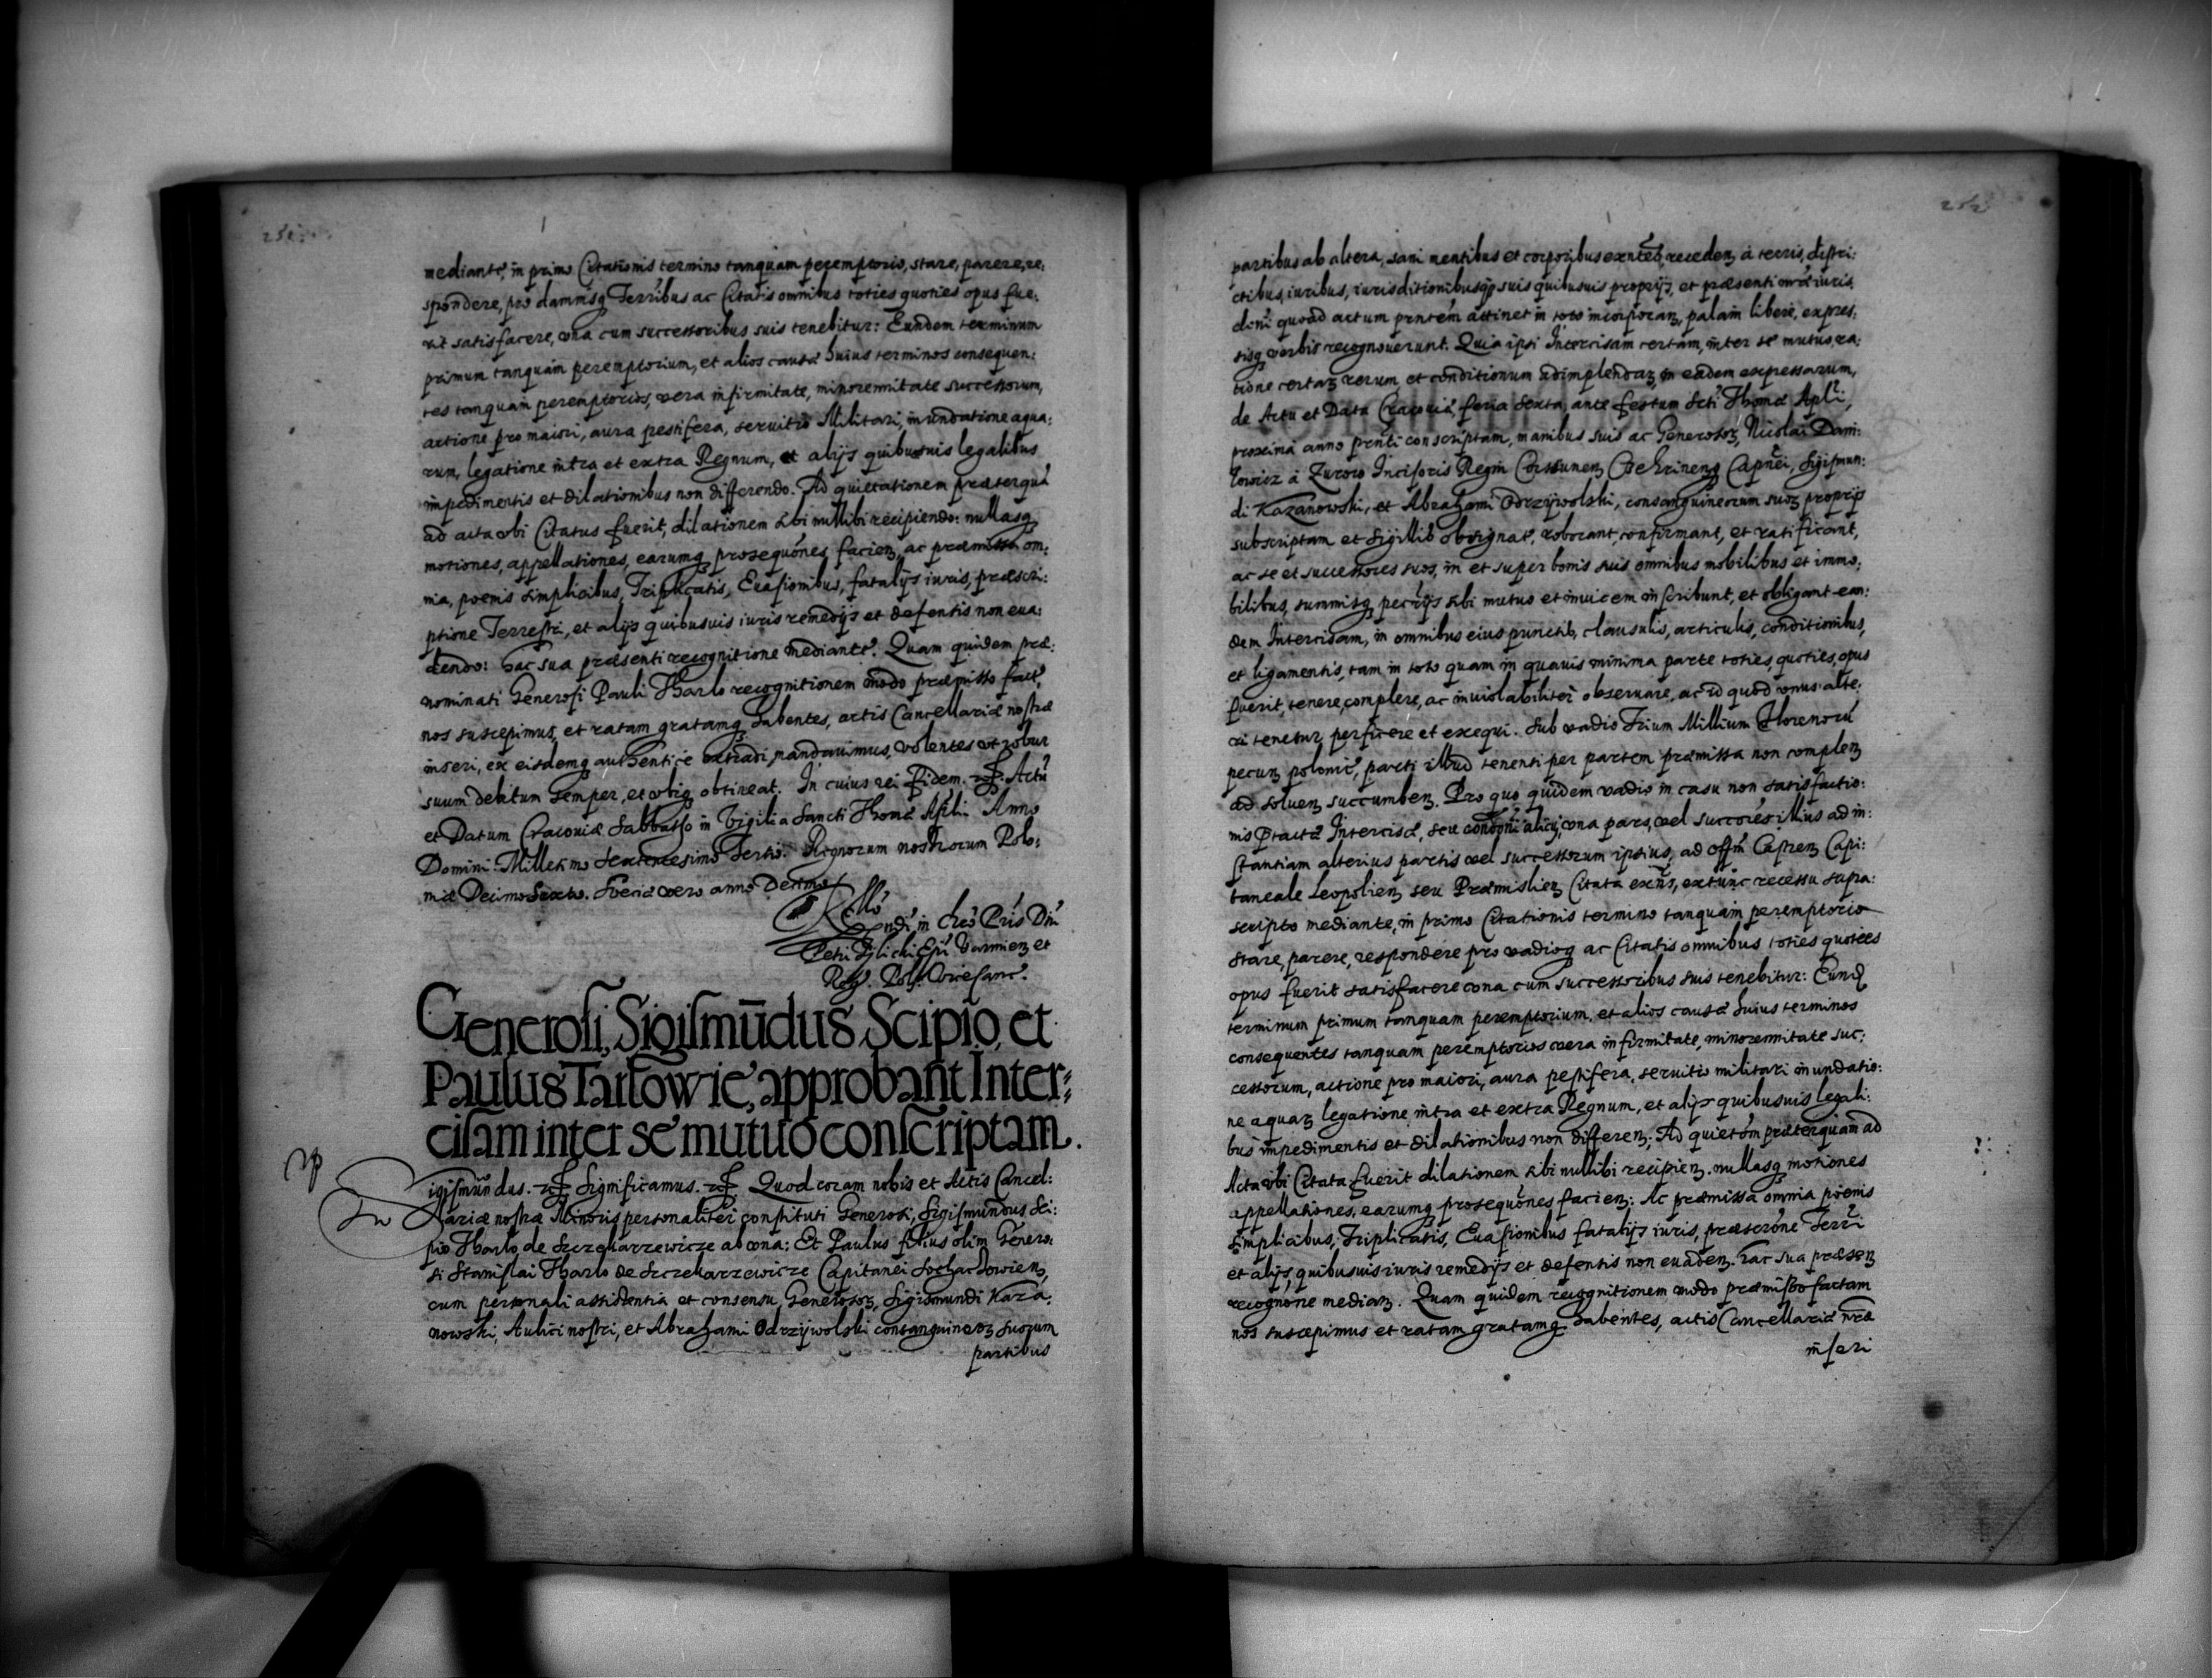 251.
mediante, in primo Citationis termino tanquam peremptorio, stare, parere, re:
spondere, pro damnisq Terribus ac Citatis omnibus toties quoties opus fue:
rit satisfacere, vna cum successoribus suis tenebitur: Eundem terminum
primum tanquam peremptorium, et alios causæ huius terminos consequen:
tes tanquam peremptorios, vera infirmitate, minorennitate successorum,
actione pro maiori, aura pestifera, seruitio Militari, inundatione aqua:
rum, legatione intra et extra Regnum, et alijs quibusuis legalibus
impedimentis et dilationibus non differendo. Ad quietationem præterquā
ad acta vbi Citatus fuerit, dilationem sibi nullibi recipiendo: nullasq
motiones, appellationes, earumq prosequōnes facien, ac præmissa om:
nia, poenis simplicibus, Triplicatis, Euasionibus, fatalijs iuris, præscri:
ptione Terrestri, et alijs quibusuis iuris remedijs et defensis non eua:
dendo: hac sua præsenti recognitione mediante. Quam quidem præ:
nominati Generosi Pauli Tharlo recognitionem modo præmisso fact,
nos suscepimus, et ratam gratamq habentes, actis Cancellariæ nostræ
inseri, ex eisdemq authentice extradi, mandauimus, volentes vt robur
suum debitum semper, et vbiq obtineat. In cuius rei fidem. Actū
et Datum Cracouiæ Sabbatho in Vigilia Sancti Thomæ Apli. Anno
Domini. Millesimo Sexcentesimo Tertio. Regnorum nostrorum Polo:
niæ Decimo Sexto. Sueciæ vero anno Decimo.
Rllō
ndi in Chrō Pris Dni
Petri Tylicki Epi Varmien et
Reg. Pol. Vicesanc.
Generosi, Sigismūdus Scipio, et
Paulus Tarłowie, approbant Inter=
cisam inter se mutuo conscriptam.
Sigismūndus. Significamus. Quod coram nobis et Actis Cancel:
lariæ nostræ Minoris personaliter constituti Generosi, Sigismundus Sci:
pio Tharlo de Szczekarzewicze ab vna: Et Paulus filius olim Genero:
si Stanislai Tharlo de Szczekarzewicze Capitanei Sochachowien,
cum personali assistentia et consensu, Generosoꝝ, Sigismundi Kaza:
nowski, Aulici nostri, et Abrahami Odrzywolski consanguineoꝝ suorum
partibus
252
partibus ab altera, sani mentibus et corporibus exntes, receden, à terris, distri:
ctibus, iuribus, iurisditionibusqꝫ suis quibusuis proprijs, et præsenti iuris
quoad actum pntem attinet in toto incorporan, palam libere, expres:
sisq verbis recognouerunt. Quia ipsi Intercisam certam, inter se mutuo, ra:
tione certaꝝ rerum, et conditionum adimplendaꝝ, in eadem expressarum,
de Actu et Data Cracouiæ, feria Sexta, ante festum Scti Thomæ Apli,
proxima anno pnti conscriptam, manibus suis ac Generosoꝝ, Nicolai Dani:
lowicz à Zurow Incisoris Regni Corsunen Czehrinenq Capnei, Sigismun:
di Kazanowski, et Abrahami Odrzywolski, consanguineorum suoꝝ proprijs
subscriptam et Sigillis obsignat, roborant confirmant, et ratificant,
ac se et successores suos, in et super bonis suis omnibus mobilibus et immo:
bilibus, summisq pecrijs sibi mutuo et inuicem inscribunt, et obligant ean:
dem Intercisam, in omnibus eius punctis, clausulis, articulis, conditionibus,
et ligamentis, tam in toto quam in quauis minima parte toties, quoties, opus
fuerit, tenere, complere, ac inuiolabiliter obseruare, ac id quod vnus alte:
ri tenetur perficere et exequi. Sub vadio Trium Millium Florenorū
pecun polonic, parti illud tenenti per partem præmissa non complen
ad soluen succumben. Pro quo quidem vadio in casu non satisfactio:
nis Ptactæ Intercisæ, seu alicui, vna pars, vel succores illius ad in:
stantiam alterius partis vel successorum ipsius, ad offm Castren Capi:
taneale Leopolien seu Præmislien Citata exns, extunc recessu supra:
scripto mediante, in primo Citationis termino tanquam peremptorio
stare, parere, respondere pro vadioq ac Citatis omnibus toties quoties
opus fuerit satisfacere vna cum successoribus suis tenebitur: Eundē
terminum primum tanquam peremptorium, et alios causæ huius terminos
consequentes tanquam peremptorios vera infirmitate, minorennitate suc:
cessorum, actione pro maiori, aura pestifera, seruitio militari inundatio:
ne aquaꝝ legatione intra et extra Regnum, et alijs quibusuis legali:
bus impedimentis et dilationibus non differen; Ad quietōm præterquam ad
Acta vbi Citata fuerit dilationem sibi nullibi recipien. nullasq motiones
appellationes, earumq prosequōnes facien: Ac præmissa omnia poenis
simplicibus, Triplicatis, Euasionibus fatalijs iuris, præscrōne Terri
et alijs, quibusuis iuris remedijs et defensis non euaden. hac sua præsen
recognōne median. Quam quidem recognitionem modo præmisso factam
nos suscepimus et ratam gratamq habentes, actis Cancellariæ nræ
inseri